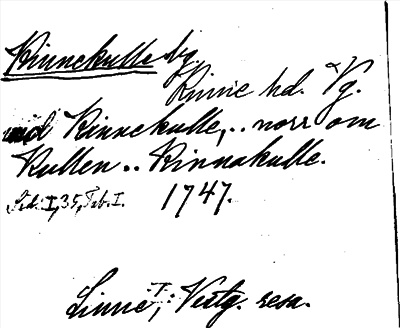 Kinnekulle bg
Kinne hd. Vg.
vid Kinnekulle, .. norr om
Kullen .. Kinnakulle.
Sid. I, 35, Tab. I. 1747.
Linné, Vestg. resa.